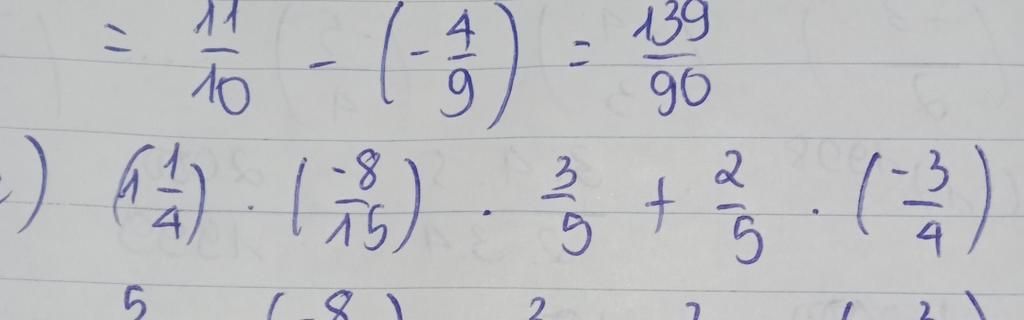 = 11/10 - (-4/9) = 139/90
) (1 1/4) · (-8/15) · 3/5 + 2/5 · (-3/4)